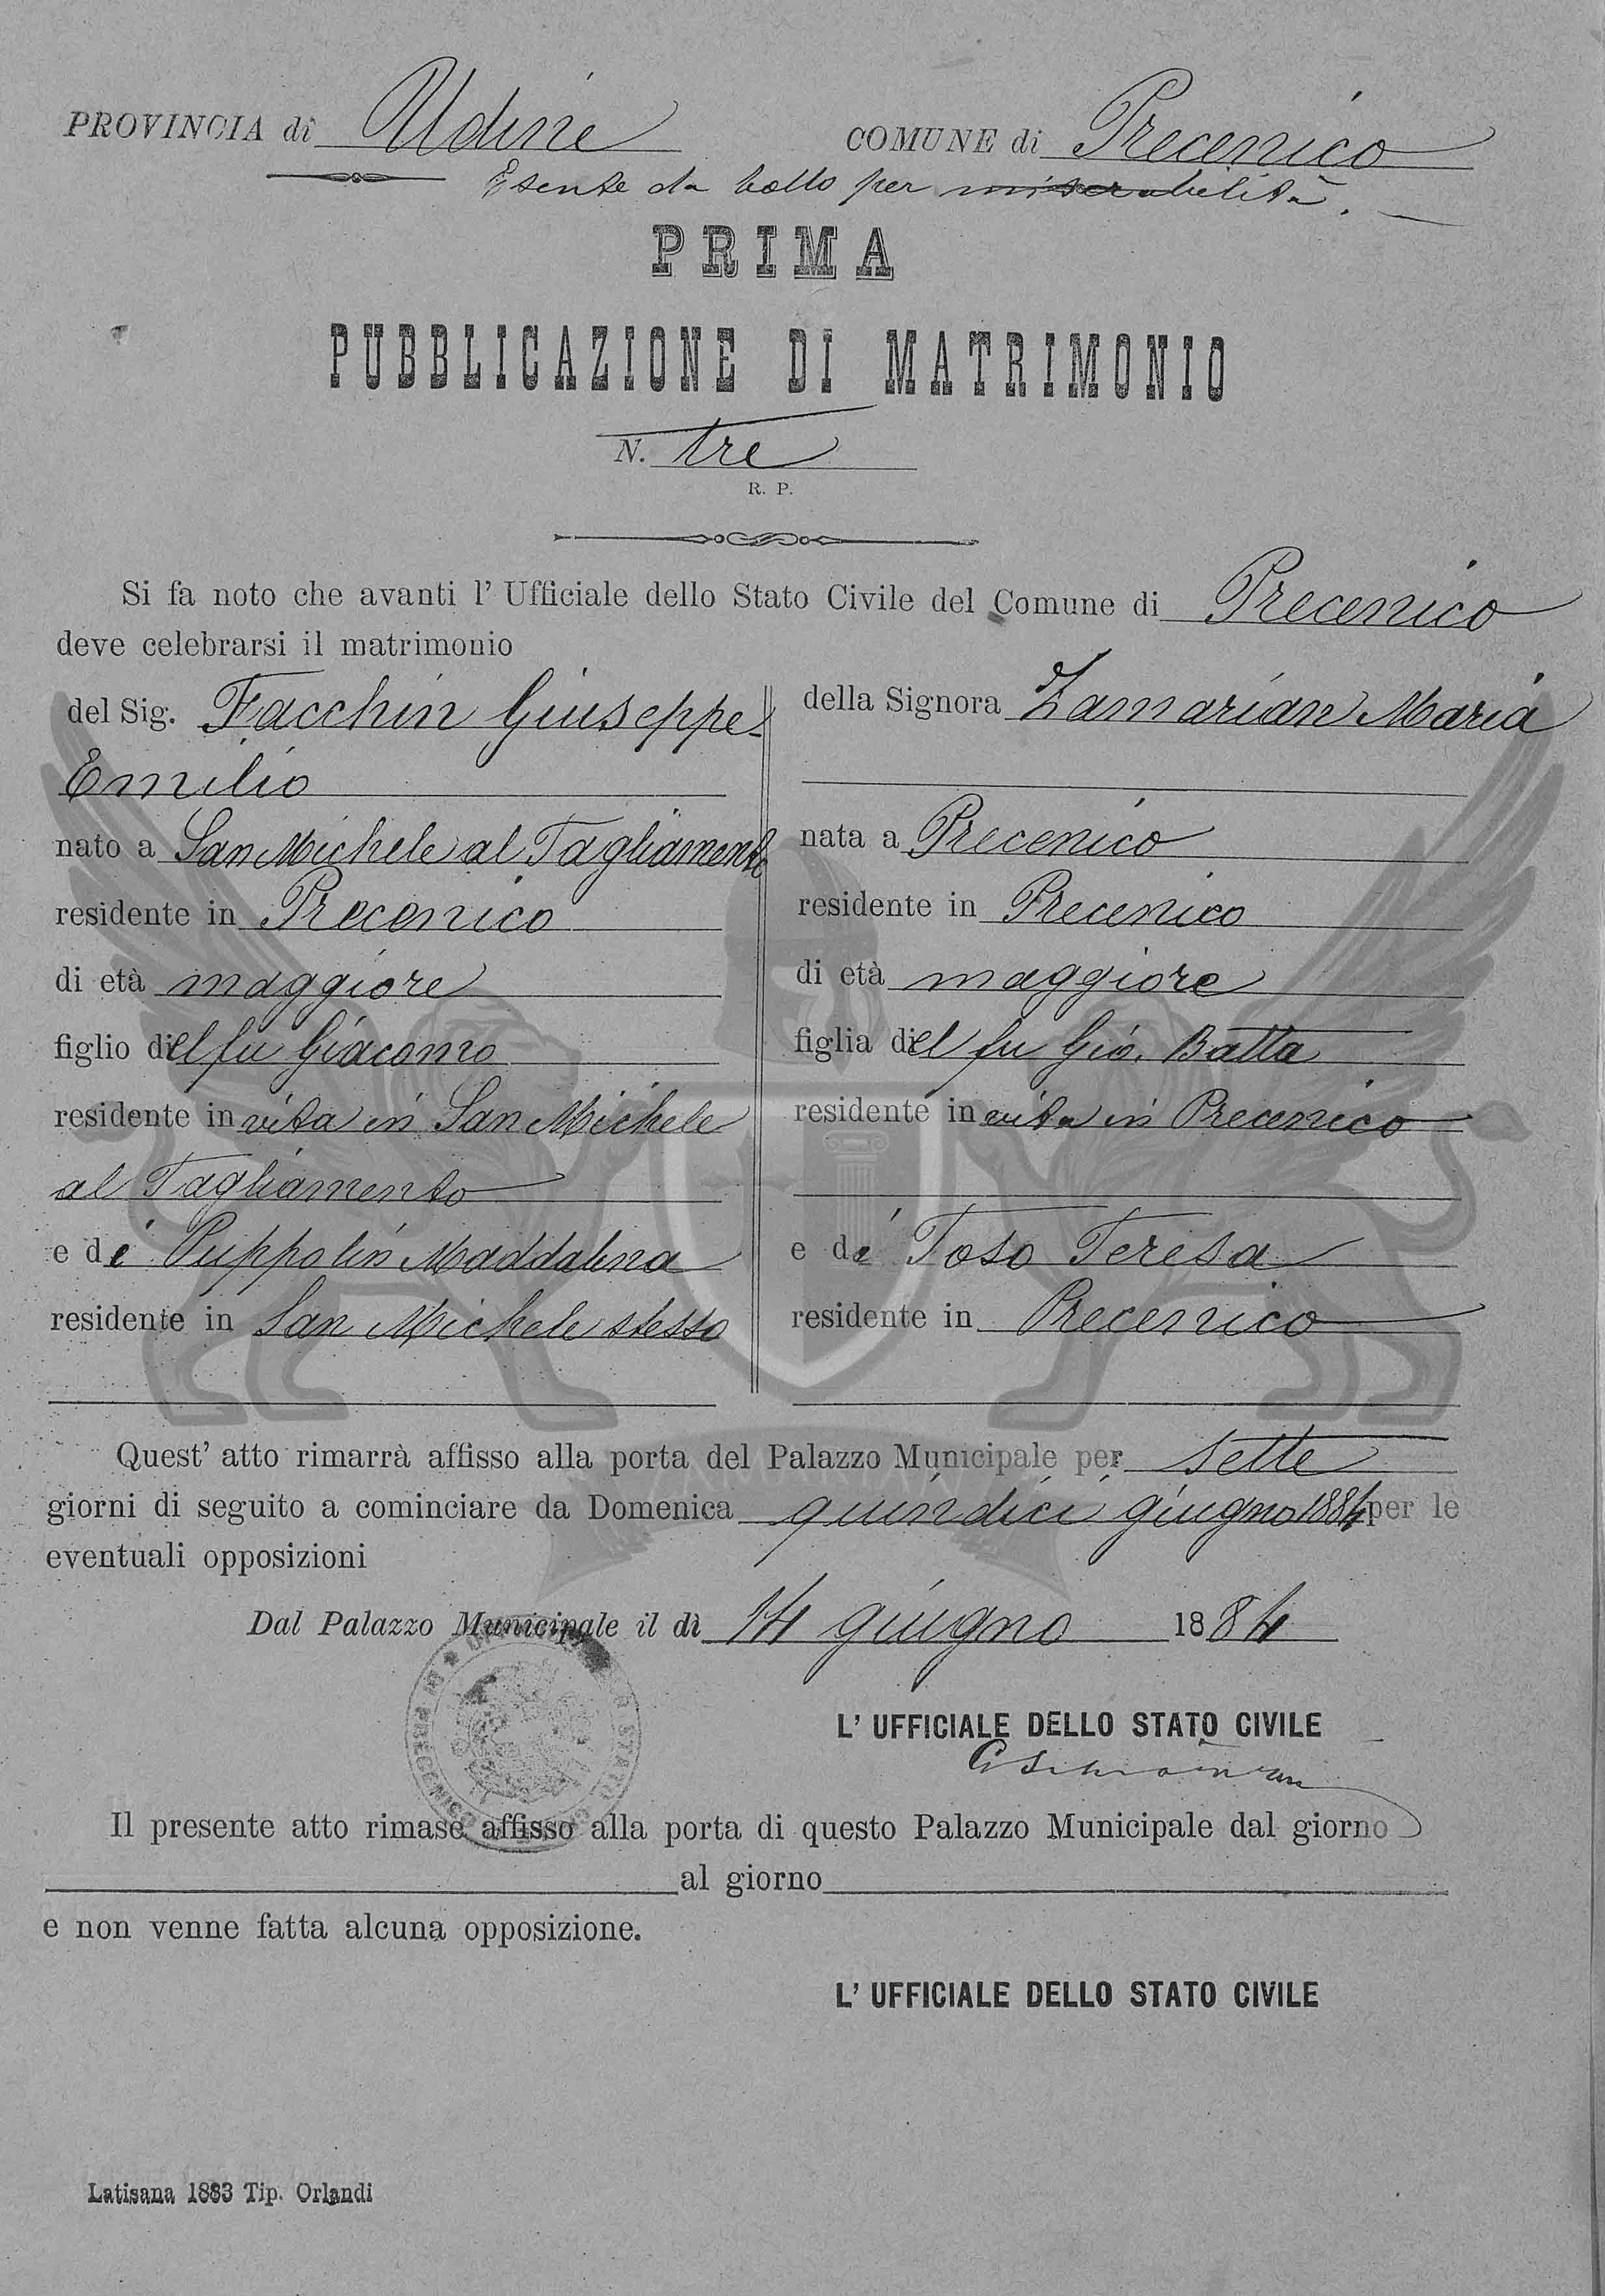 PROVINCIA di Udine COMUNE di Precenico
Esente da bollo per miserabilità.
PRIMA
PUBBLICAZIONE DI MATRIMONIO
N. tre
R. P.
Si fa noto che avanti l' Ufficiale dello Stato Civile del Comune di Precenico
deve celebrarsi il matrimonio
del Sig. Facchin Giuseppe
Emilio
nato a San Michele al Tagliamento
residente in Precenico
di età maggiore
figlio del fu Giacomo
residente in vita in San Michele
al Tagliamento
e di Puppolin Maddalena
residente in San Michele stesso
della Signora Zamarian Maria
nata a Precenico
residente in Precenico
di età maggiore
figlia del fu Gio. Batta
residente in vita in Precenico
e di Toso Teresa
residente in Precenico
Quest' atto rimarrà affisso alla porta del Palazzo Municipale per sette
giorni di seguito a cominciare da Domenica quindici giugno 1884 per le
eventuali opposizioni
Dal Palazzo Municipale il dì 14 giugno 1884
L' UFFICIALE DELLO STATO CIVILE
Il presente atto rimase affisso alla porta di questo Palazzo Municipale dal giorno
al giorno
e non venne fatta alcuna opposizione.
L' UFFICIALE DELLO STATO CIVILE
Latisana 1883 Tip. Orlandi